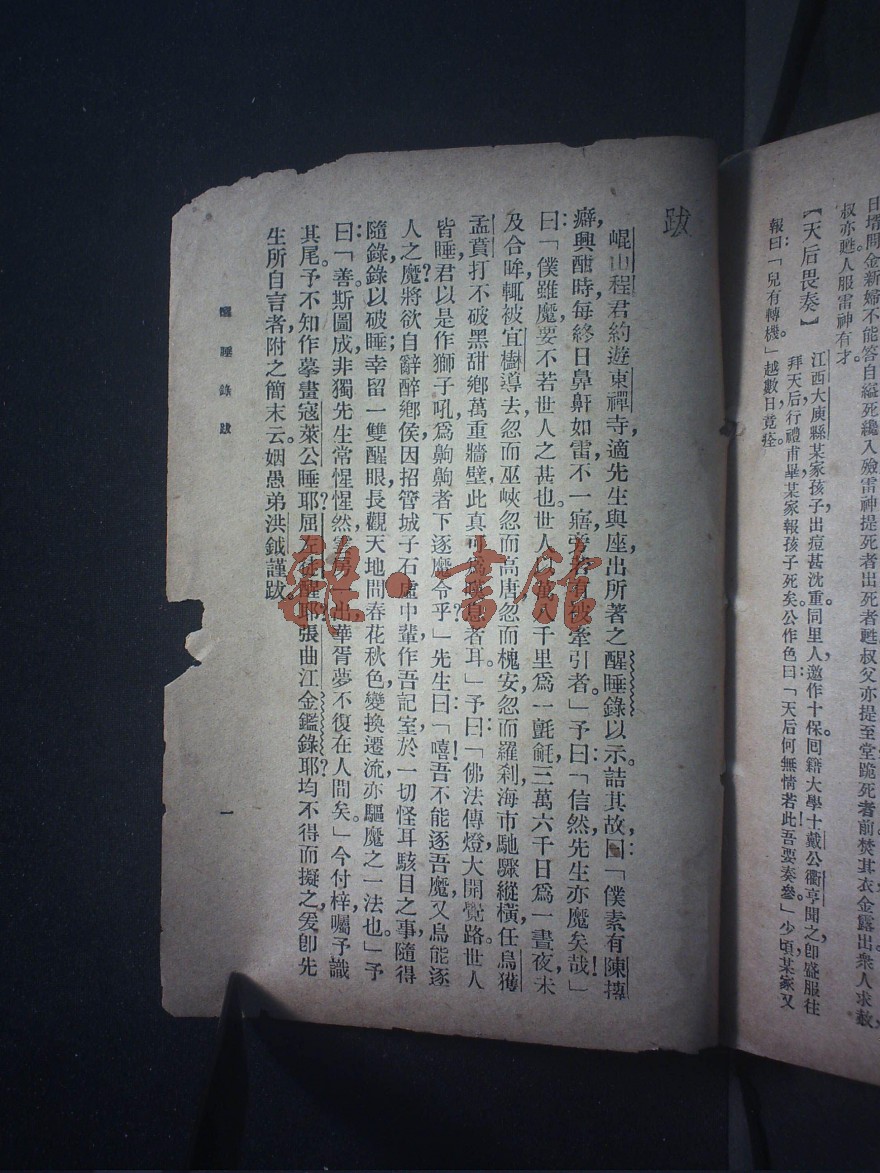 日塔問金新婦不能答自縊死纔入殮雷神提死者出死者甦叔父亦提至堂跪死者前焚其衣金露出衆人求赦，
叔亦甦人服雷神有才。
【天后畏奏】
江西大庾縣某家孩子出痘甚沈重。同里人邀作十保。回籍大學士戴公衢亨聞之卽盛服往
拜天后，行禮甫畢，某家報孩子死矣。公作色曰：「天后何無情若此！吾要奏參。」少頃，某家又
報曰：「兒有轉機。」越數日竟痊。
跋
崐山程君約遊東禪寺，適先生與座，出所著之醒睡錄以示。詰其故，曰：「僕素有陳摶
癖，興酣時，每終日鼻鼾如雷，不一寤，旁若有被牽引者。」予曰：「信然，先生亦魔矣哉！」
曰：「僕雖魔，要不若世人之甚也。世人以萬八千里爲一氈毹，三萬六千日爲一晝夜，未
及合眸，輒被宜樹導去，忽而巫峽，忽而高唐，忽而槐安，忽而羅刹海市，馳驟縱橫，任烏獲
孟賁打不破黑甜鄉萬重牆壁，此真可爲嘆息者耳。」予曰：「佛法傳燈，大開覺路，世人
皆睡，君以是作獅子吼，爲齁齁者下逐魔令乎？」先生曰：「嘻！吾不能逐吾魔，又烏能逐
人之魔？將欲自辭醉鄉侯，因招管城子石虛中輩作吾記室，於一切怪耳駭目之事，隨得
隨錄，錄以破睡；幸留一雙醒眼，長觀天地間春花秋色，變換遷流，亦驅魔之一法也。」予
曰：「善。斯圖成，非獨先生常惺惺然，雲房一出，華胥夢不復在人間矣。」今付梓，囑予識
其尾。予不知作摹畫寇萊公睡耶？屈左徒醒耶？張曲江金鑑錄耶？均不得而擬之，爰卽先
生所自言者，附之簡末云。姻愚弟洪鉞謹跋。
醒睡錄 跋
一
雜·書館